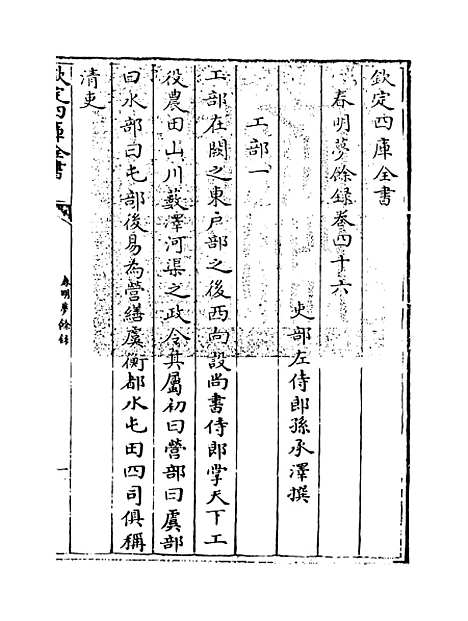 欽定四庫全書
春明夢餘録卷四十六
吏部左侍郎孫承澤撰
工部一
工部在闕之東户部之後西向設尚書侍郎掌天下工
役農田山川藪澤河渠之政令其屬初曰營部曰虞部
曰水部曰屯部後易為營繕虞衡都水屯田四司俱稱
清吏
欽定四庫全書
春明夢餘録
一